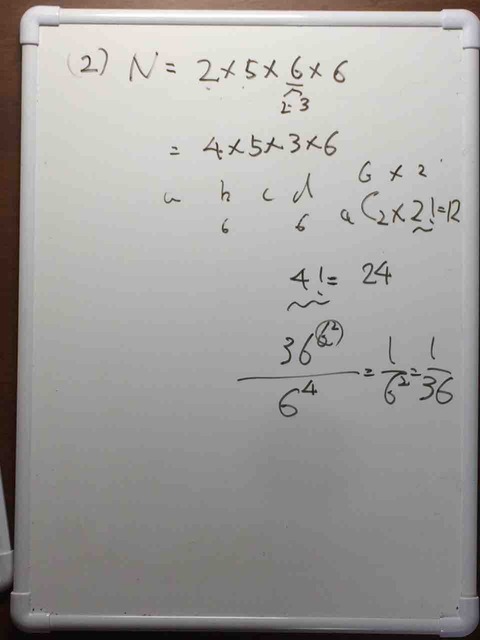 (2) N = 2×5×6×6
2 3
= 4×5×3×6
6 × 2
a b c d
6 6
4C2×2!=12
4! = 24
36(6²)
/6⁴ = 1/6² = 1/36